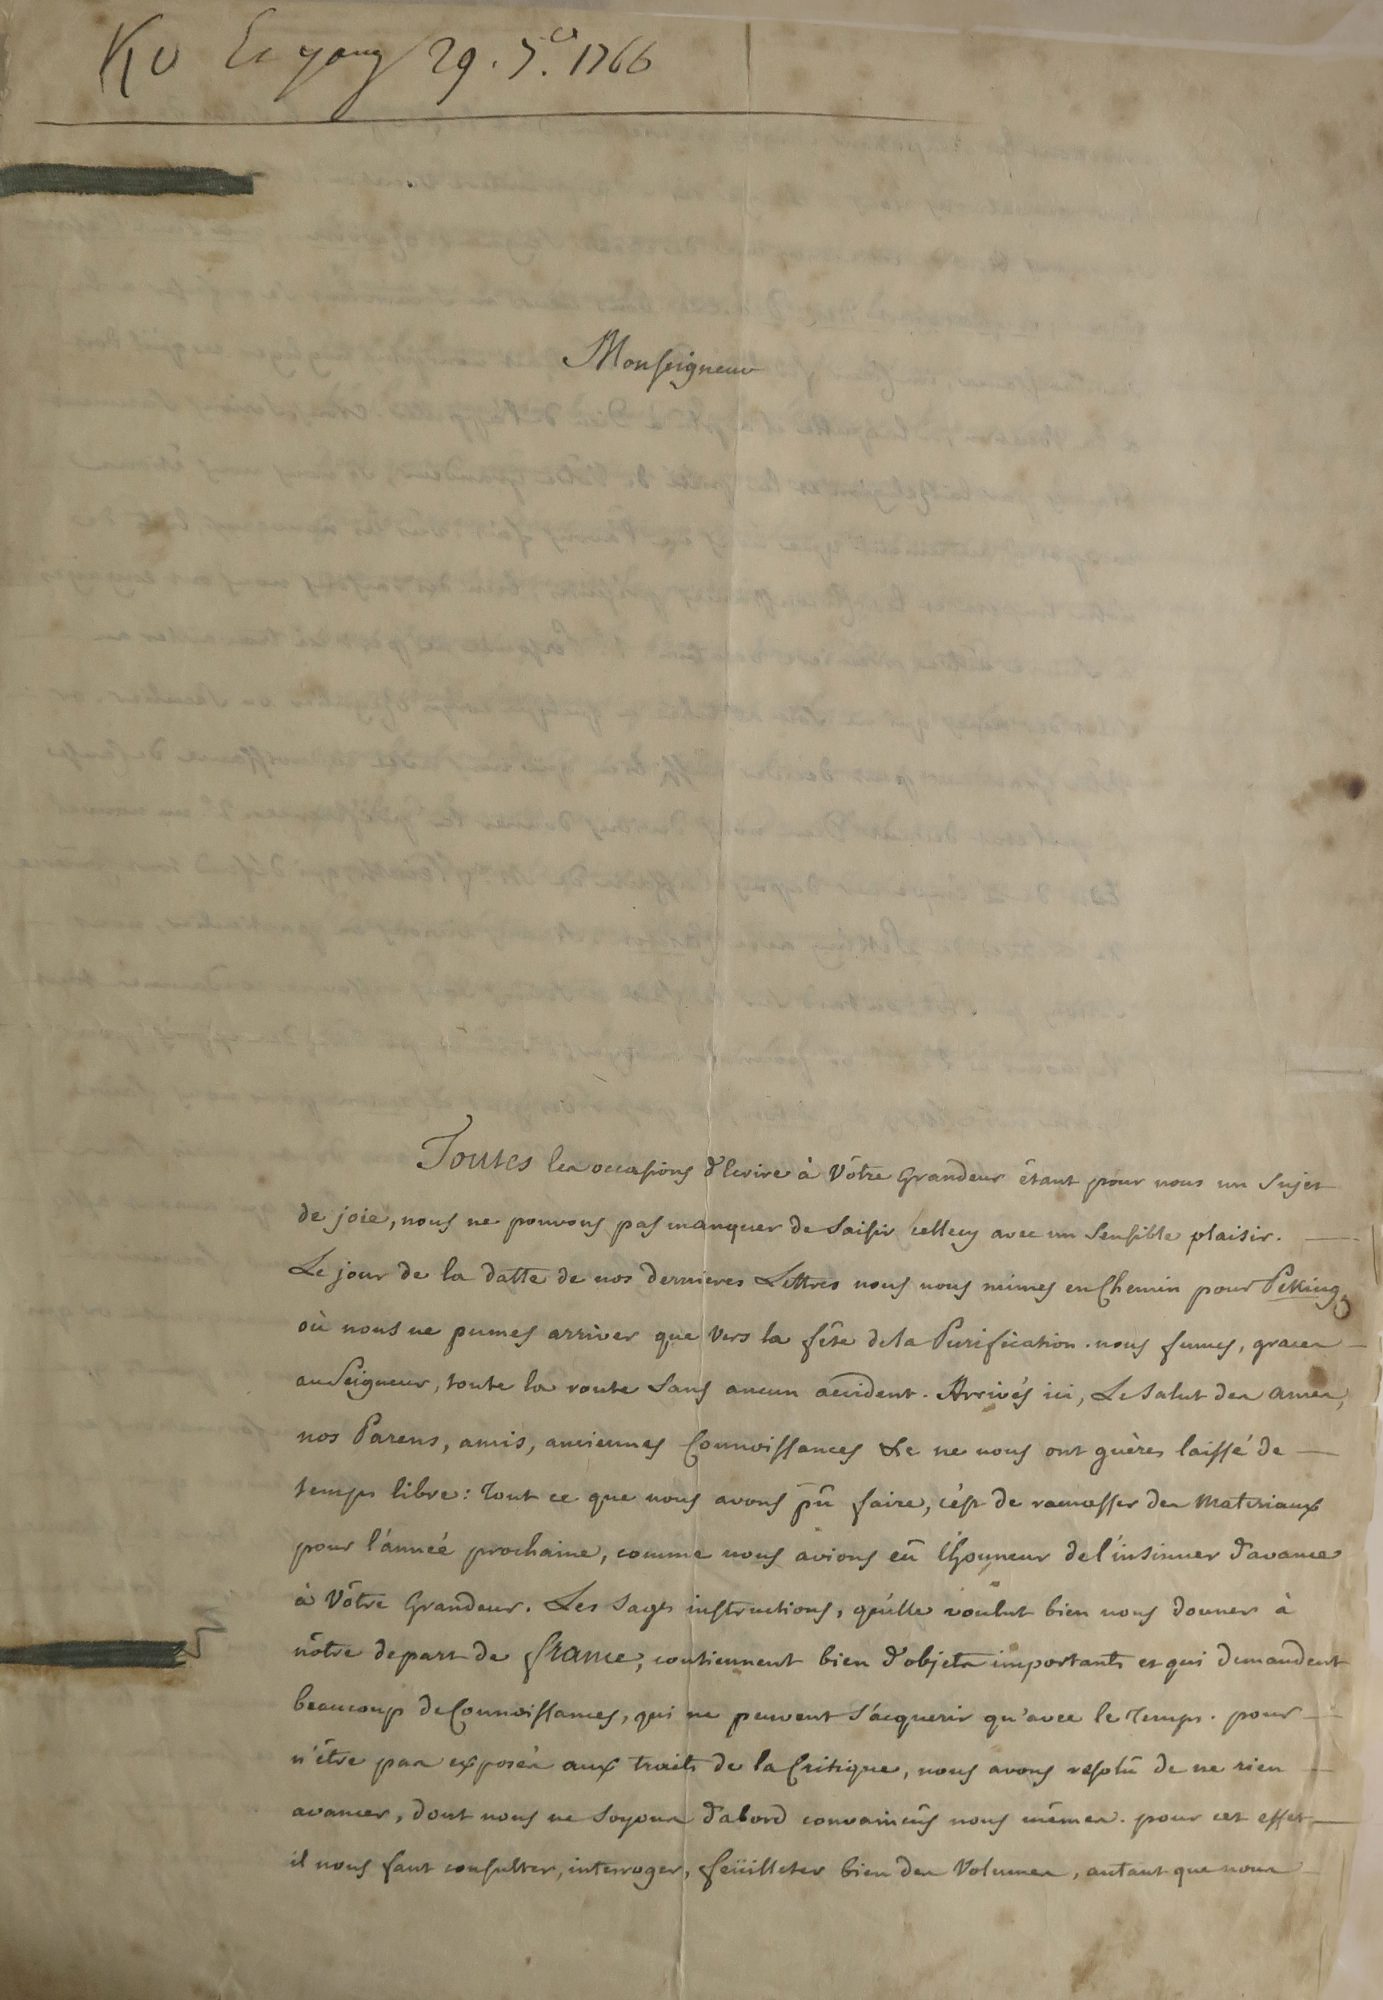 Ko & yang 29. 7.bre 1766
Monseigneur
Toutes les occasions d'Ecrire à Vôtre Grandeur étant pour nous un sujet
de joie, nous ne pouvons pas manquer de saisir cellecy avec un sensible plaisir.
Le jour de la datte de nos dernieres Lettres nous nous mimes en Chemin pour Peking,
où nous ne pumes arriver que vers la fête de la Purification. nous fumes, graces
au Seigneur, toute la route sans aucun accident. Arrivés ici, Le salut des ames,
nos Parens, amis, anciennes Connoissances &c ne nous ont guères laissé de
temps libre: Tout ce que nous avons pû faire, c'est de ramasser des Materiaux
pour l'année prochaine, comme nous avions eû l'honneur de l'insinuer d'avance
à Vôtre Grandeur. Les sages instructions, qu'elle voulut bien nous donner à
nôtre depart de france, contiennent bien d'objets importants et qui demandent
beaucoup de Connoissances, qui ne peuvent s'acquerir qu'avec le Temps. pour
n'être pas exposés aux traits de la Critique, nous avons resolû de ne rien
avancer, dont nous ne soyons d'abord convaincûs nous mêmes. pour cet effet
il nous faut consulter, interroger, feüilleter bien des Volumes, autant que nous